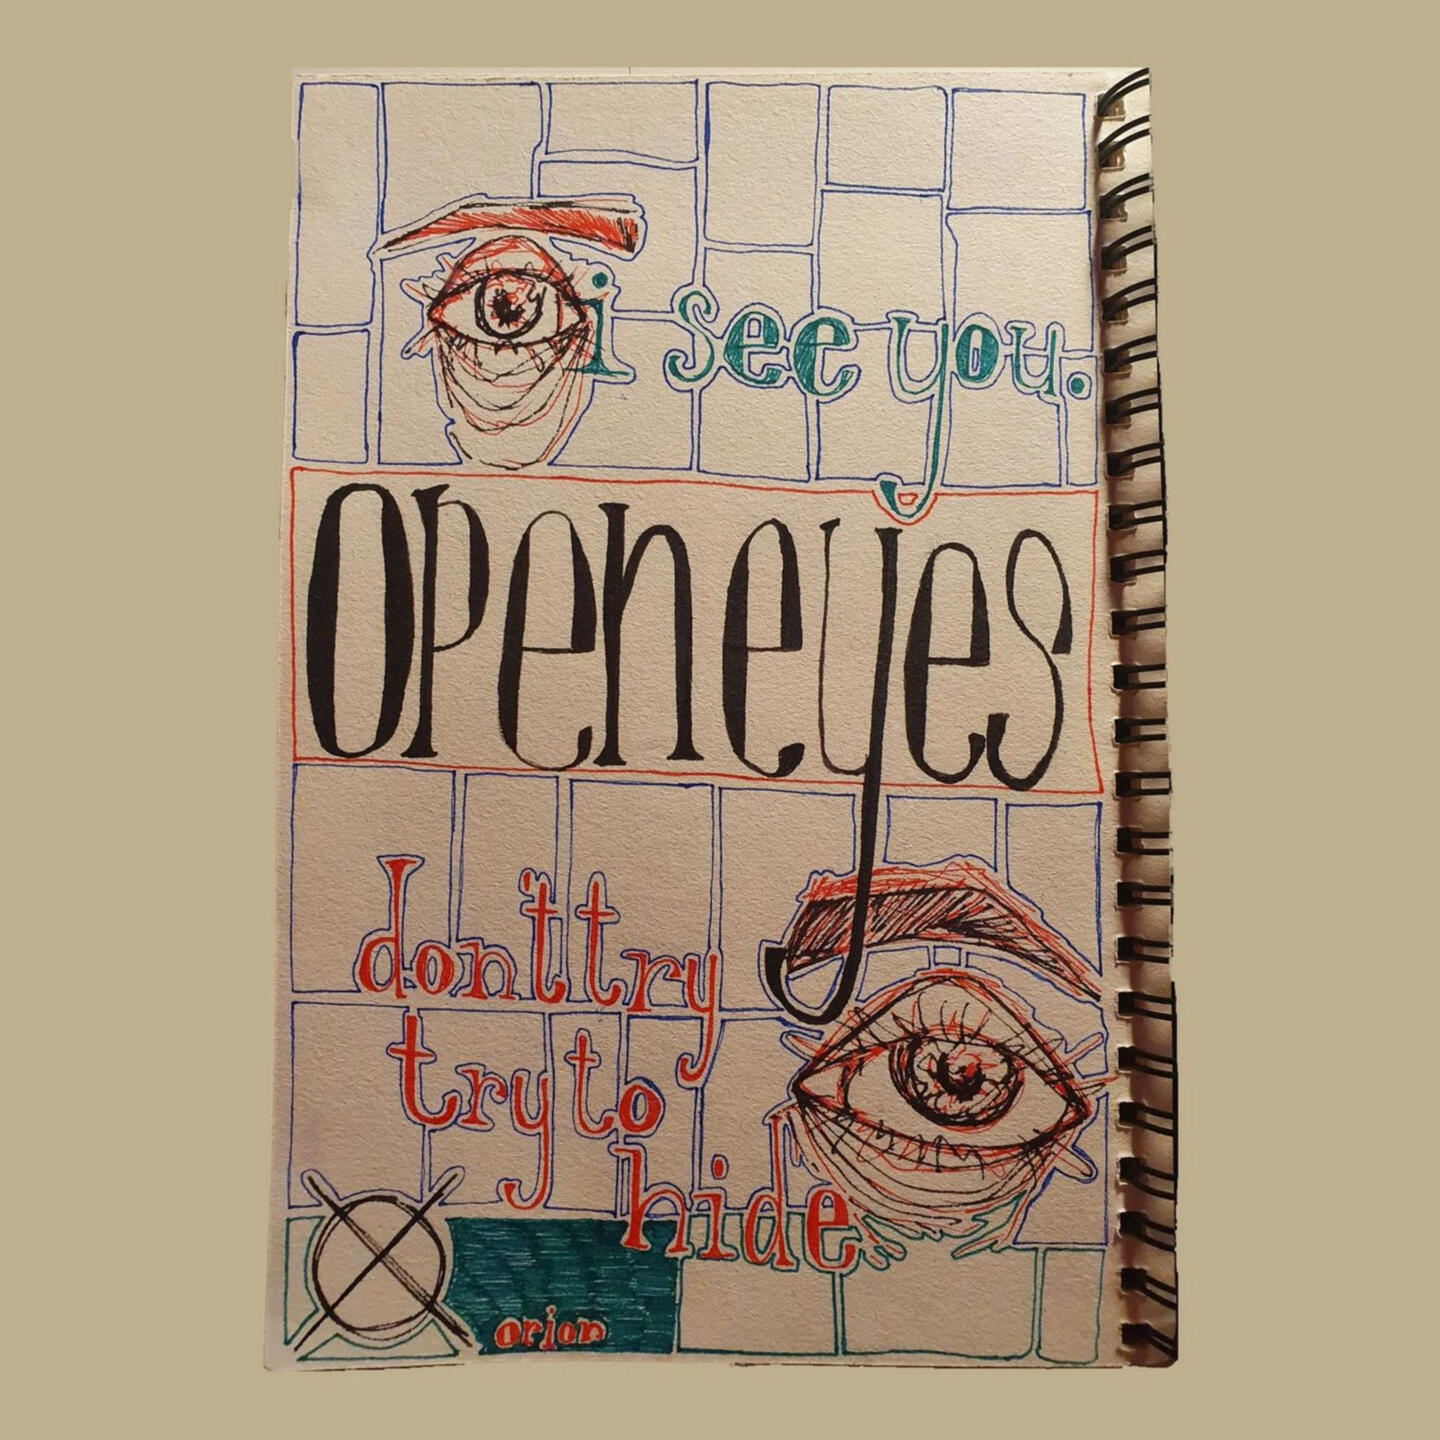 i see you.
openeyes
don't try
try to
hide
orion